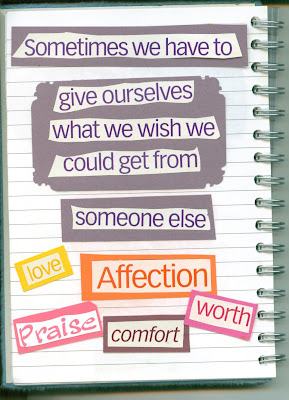 Sometimes we have to
give ourselves
what we wish we
could get from
someone else
love
Affection
worth
Praise
comfort